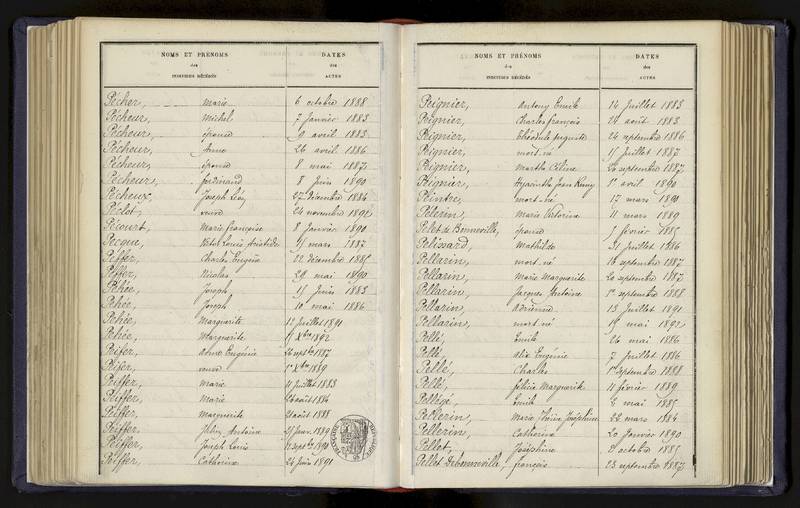 NOMS ET PRÉNOMS DATES
des des
INDIVIDUS DÉCÉDÉS ACTES
Pécher, Marie 6 octobre 1888
Pécheur, Michel 7 Janvier 1883
Pécheur, épouse 9 avril 1883
Pécheur, Anne 26 avril 1886
Pécheur, épouse 8 mai 1887
Pécheur, ferdinand 8 Juin 1890
Pécheux, Joseph Léon 27 Décembre 1884
Péclot, veuve 24 novembre 1892
Pécourt, Marie françoise 8 Janvier 1890
Pecque, Victor Louis Aristide mars 1887
Peffer, Charles Eugène 22 décembre 1885
Peffer, Nicolas 29 mai 1890
Pehée, Joseph 15 Juin 1883
Pehée, Joseph 10 mai 1886
Pehée, Marguerite 12 Juillet 1891
Pehée, Marguerite Xbre 1892
Peifer, Eugénie 26 septbre 1887
Peifer, veuve 1er Xbre 1889
Peiffer, Marie 11 Juillet 1883
Peiffer, Marie août 1884
Peiffer, Marguerite 21 août 1888
Peiffer, Antoine Janv. 1889
Peiffer, Joseph Louis septbre 1890
Peiffer, Catherine 24 Juin 1891
NOMS ET PRÉNOMS DATES
des des
INDIVIDUS DÉCÉDÉS ACTES
Peignier, Antony Emile 14 Juillet 1883
Peignier, Charles françois 24 août 1883
Peignier, Théodule Auguste 24 septembre 1886
Peignier, mort-né 15 Juillet 1887
Peignier, Marthe Céline 20 septembre 1887
Peignier, Hyacinthe Jean Rémy 1er avril 1890
Peintre, mort-né 17 mars 1890
Pelerin, Marie Victorine 11 mars 1889
Pelet de Bonneville, épouse 7 février 1885
Pelissard, Mathilde 31 Juillet 1886
Pellarin, mort-né 16 septembre 1887
Pellarin, Marie Marguerite 20 septembre 1887
Pellarin, Jacques Antoine 1er septembre 1888
Pellarin, Adrienne 13 Juillet 1891
Pellarin, mort-né 19 mai 1892
Pellé, Emile 26 mai 1886
Pellé, Alix Eugénie 7 Juillet 1886
Pellé, Charles 1er septembre 1888
Pellé, félicie Marguerite 11 février 1889
Pellégé, Emile 2 mai 1885
Pellerin, Marie Thérèse Joséphine 22 mars 1884
Pellerin, Catherine 20 Janvier 1890
Pellet, Joséphine 2 octobre 1885
Pellet Debonneville, françois 23 septembre 1887